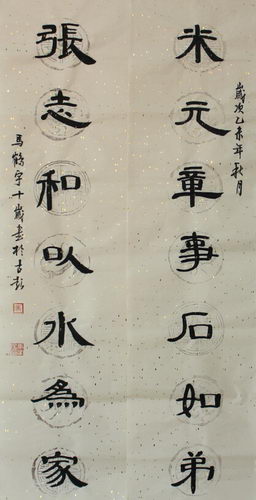 歲次乙未年秋月
米元章事石如弟
張志和以水為家
馬鶴宇十歲書於古彭